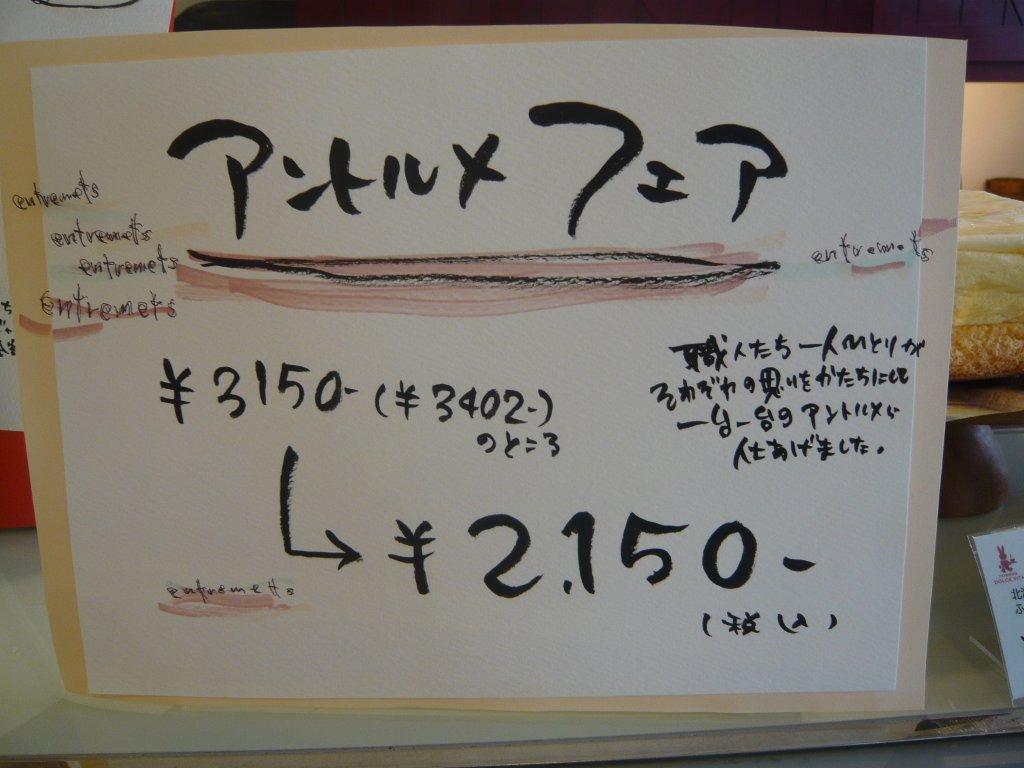 アントルメ フェア
entremets
entremets
entremets
entremets
entremets
¥3150-(¥3402-)
のところ
職人たち一人ひとりが
それぞれの思いをかたちにして
一台一台のアントルメに
仕あげました。
¥2,150-
(税込)
entremets
DOLCE VITA